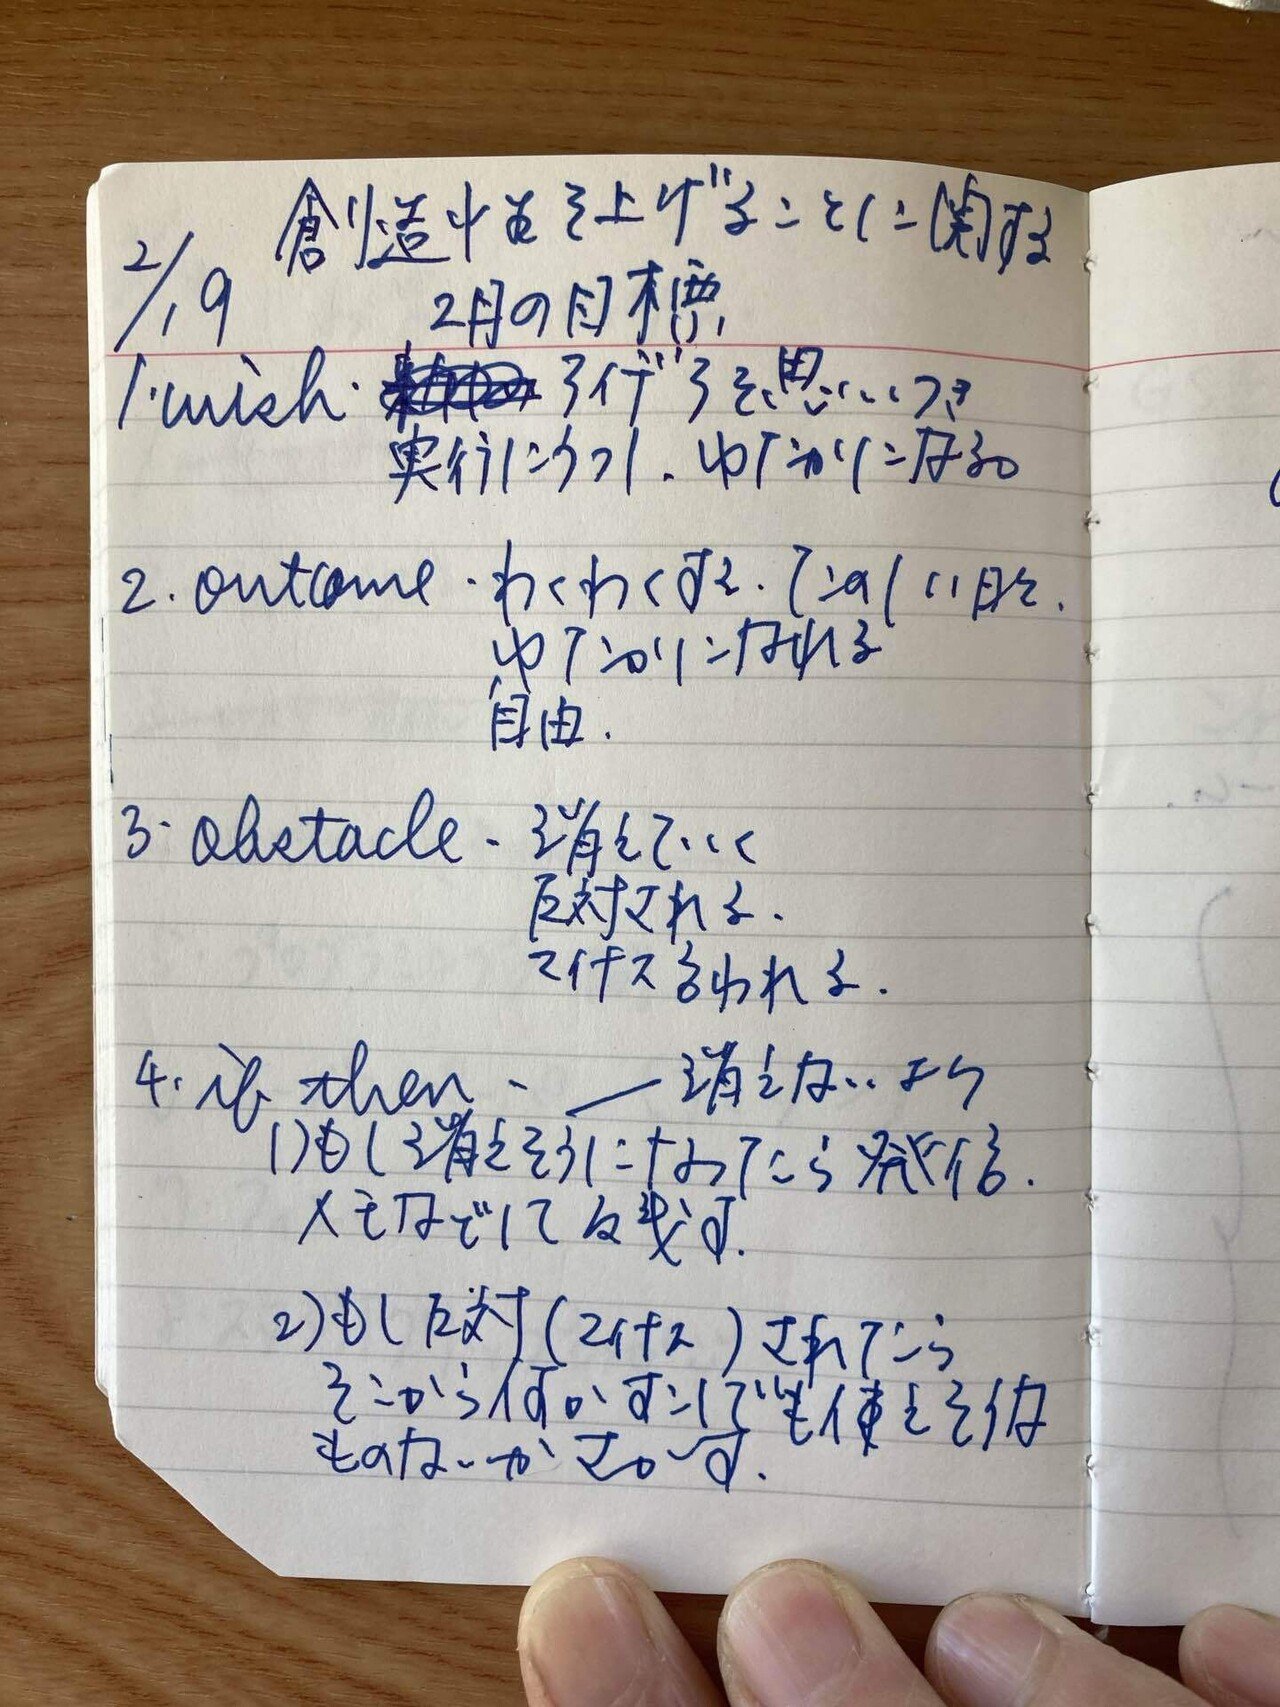 創造性を上げることに関する
2/19
2月の目標
1.wish. アイデアを思いつき
実行にうつし、ゆたかになる。
2. outcome. わくわくする. たのしい日々.
ゆたかになれる
自由.
3. obstacle - 消えていく
反対される.
マイナス言われる.
4. if then - 消えないよう
1)もし消えそうになったら発信.
メモなどして残す.
2)もし反対(マイナス)されたら
そこから何か少しでも使えそうな
ものないかさがす.